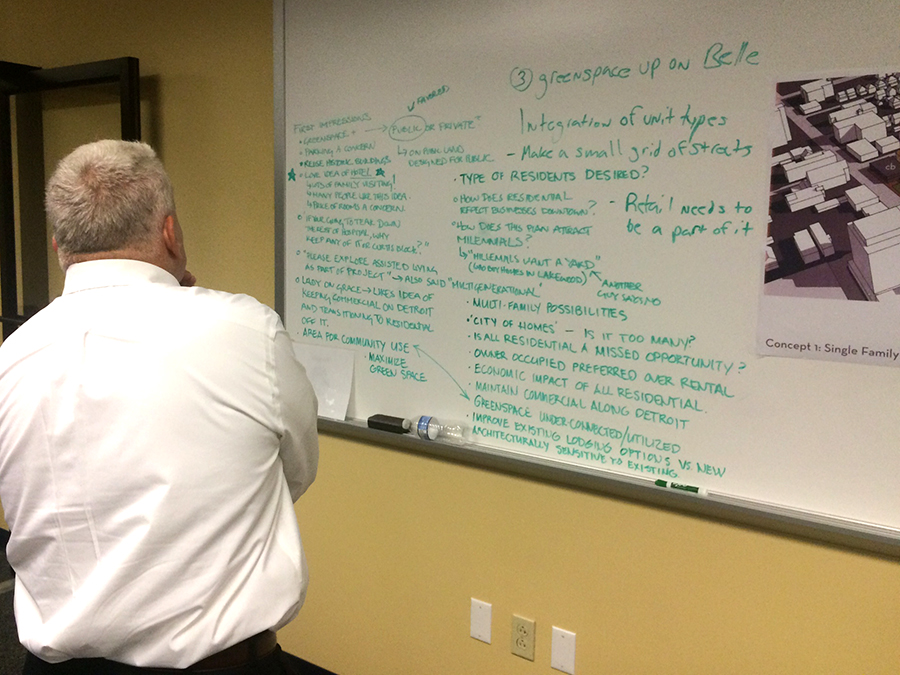 ③ greenspace up on Belle
Integration of unit types
- Make a small grid of streets
- Retail needs to
be a part of it
FAVORED
FIRST IMPRESSIONS
• GREENSPACE" → PUBLIC OR PRIVATE"
↳ ON PUBLIC LAND
DESIGNED FOR PUBLIC
• PARKING A CONCERN
• REUSE HISTORIC BUILDINGS
★ LOVE IDEA OF HOTEL ★
FAMILY VISITING!
↳ MANY PEOPLE LIKE THIS IDEA
↳ PRICE OF ROOMS A CONCERN
IF YOUR GOING TO TEAR DOWN
THE REST OF HOSPITAL, WHY
KEEP PART OF IT OR CURTIS BLOCK?"
"PLEASE EXPLORE ASSISTED LIVING
AS PART OF PROJECT" → ALSO SAID "MULTIGENERATIONAL"
LADY ON GRACE → LIKES IDEA OF
KEEPING COMMERCIAL ON DETROIT
AND TRANSITIONING TO RESIDENTIAL
OFF IT.
• AREA FOR COMMUNITY USE
• MAXIMIZE
GREEN SPACE
• TYPE OF RESIDENTS DESIRED?
HOW DOES RESIDENTIAL
EFFECT BUSINESSES DOWNTOWN?
"HOW DOES THIS PLAN ATTRACT
MILENNIALS?
↳ "MILLENIALS WANT A 'YARD'
HOMES IN LAKEWOOD)
ANOTHER
GUY SAYS NO
• MULTI-FAMILY POSSIBILITIES
• 'CITY OF HOMES' - IS IT TOO MANY?
• IS ALL RESIDENTIAL A MISSED OPPORTUNITY?
• OWNER OCCUPIED PREFERRED OVER RENTAL
• ECONOMIC IMPACT OF ALL RESIDENTIAL.
• MAINTAIN COMMERCIAL ALONG DETROIT
• GREENSPACE UNDER CONNECTED/UTILIZED
• IMPROVE EXISTING LODGING OPTIONS VS. NEW
• ARCHITECTURALLY SENSITIVE TO EXISTING
cb
Concept 1: Single Family